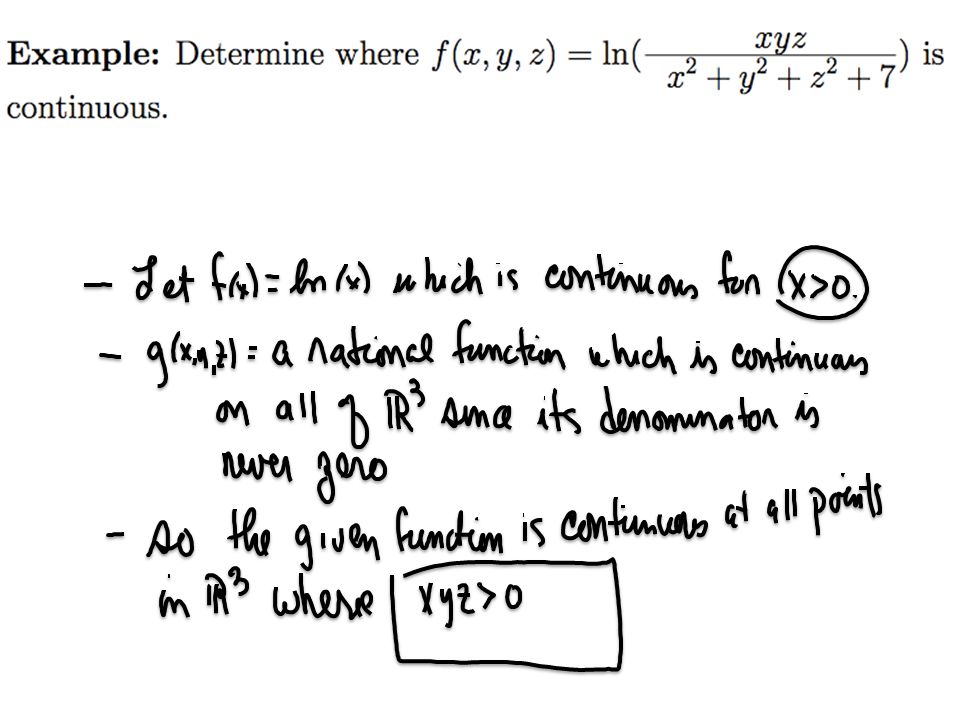 Example: Determine where f(x, y, z) = ln(xyz / (x² + y² + z² + 7)) is
continuous.
– Let f(x) = ln(x) which is continuous for x>0.
– g(x,y,z) = a rational function which is continuous
on all of ℝ³ since its denominator is
never zero
– So the given function is continuous at all points
in ℝ³ where xyz>0